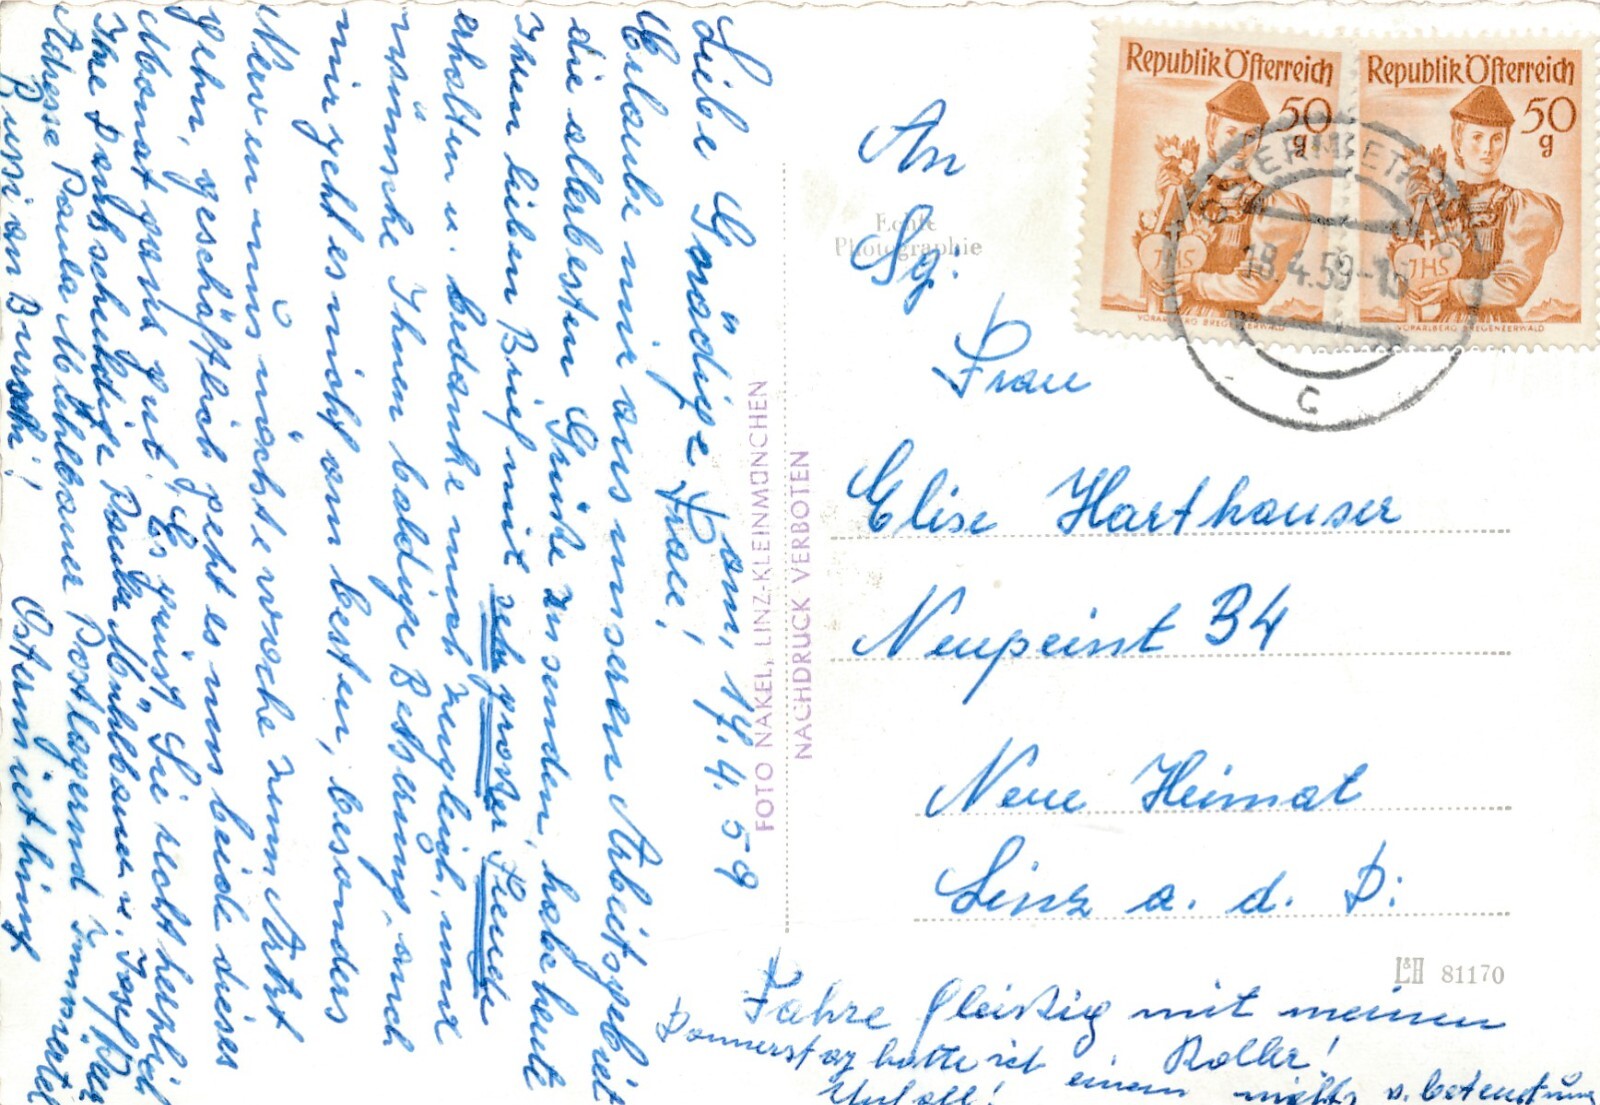 am, 17. 4. 59
Liebe Gnädige Frau!
Erlaube mir aus unseren Arbeitsgebiet
die allerbesten Grüße zu senden, habe heute
Ihren lieben Brief mit sehr grosser Freude
erhalten u. bedanke mich zugleich, und
wünsche Ihnen baldige Besserung, auch
mir geht es nicht am besten, besonders
Nerven muß nächste woche zum Arzt
gehn, geschäftlich geht es uns beide dieses
Monat ganz gut. Es grüßt Sie recht herzlich
Ihre Dankschuldige Paula Mühlbauer u. Josef
Adresse Paula Mühlbauer Postlagernd
Bussi an Burschi! Ostermiething
FOTO NAKEL, LINZ-KLEINMÜNCHEN
NACHDRUCK VERBOTEN
Echte
Photographie
Republik Österreich
50
g
JHS
VORARLBERG BREGENZERWALD
Republik Österreich
50
g
JHS
VORARLBERG BREGENZERWALD
18.4.59
C
An
Frau
Elise Harthauser
Neupeint 34
Neue Heimat
Linz a. d. D:
L&H 81170
Fahre fleißig mit meinen
Roller!
Donnerstag hatte ich einen
Unfall! nichts v. bedeutung